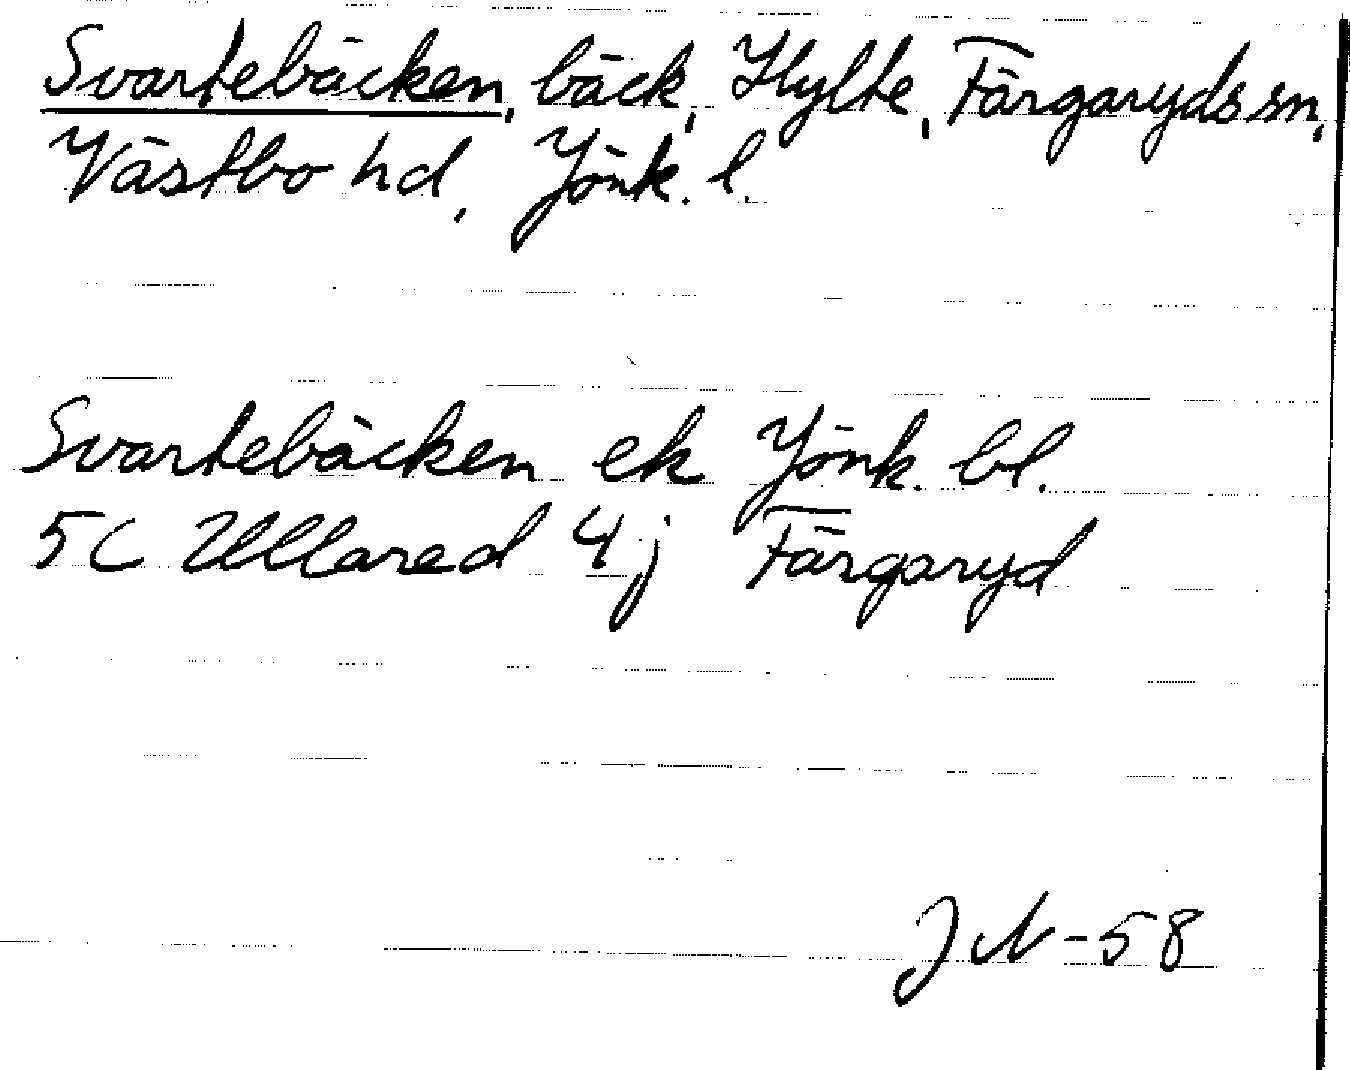 Svartebäcken, bäck, Hylte, Färgaryds sn,
Västbo hd, Jönk. l.
Svartebäcken ek Jönk. bl.
5C Ullared 4j Färgaryd
JN-58